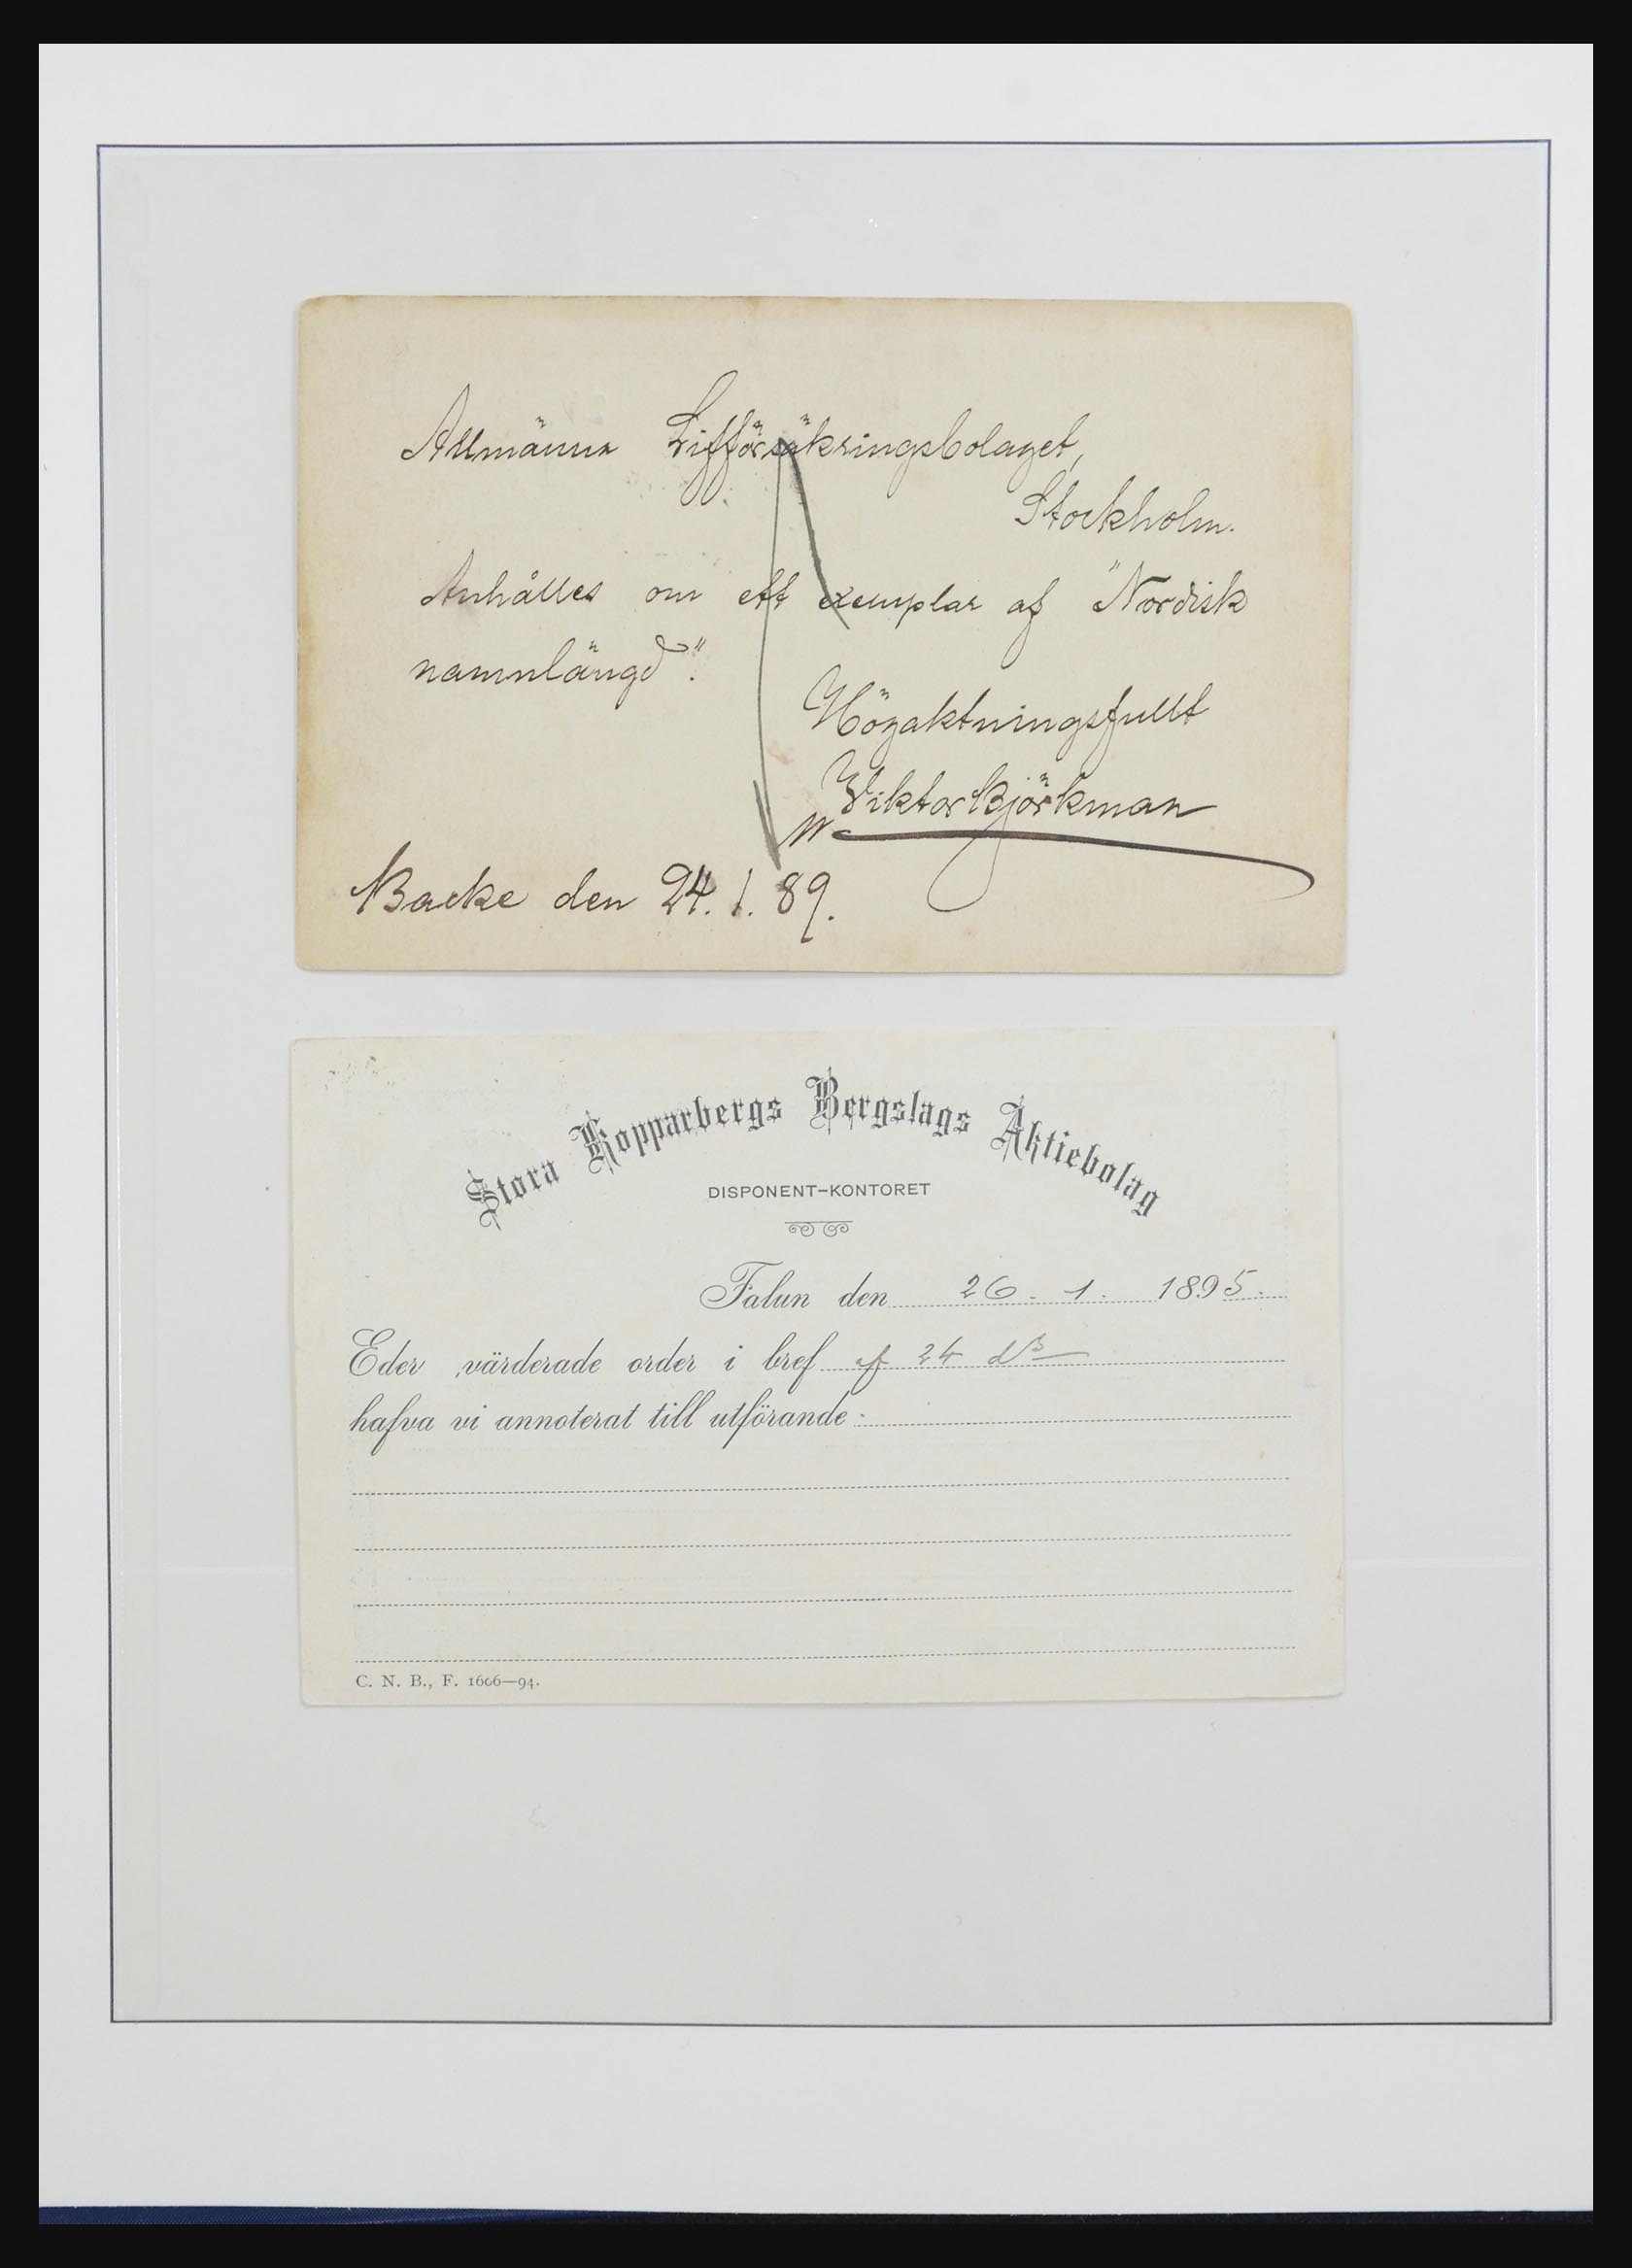 Allmänna Lifförsäkringsbolaget,
Stockholm.
Anhålles om ett exemplar af "Nordisk
namnlängd".
Högaktningsfullt
Viktor Björkman
Backe den 24.1.89.
Stora Kopparbergs Bergslags Aktiebolag
DISPONENT-KONTORET
Falun den 26. 1. 1895.
Eder värderade order i bref af 24 ds
hafva vi annoterat till utförande.
C. N. B., F. 1606—94.